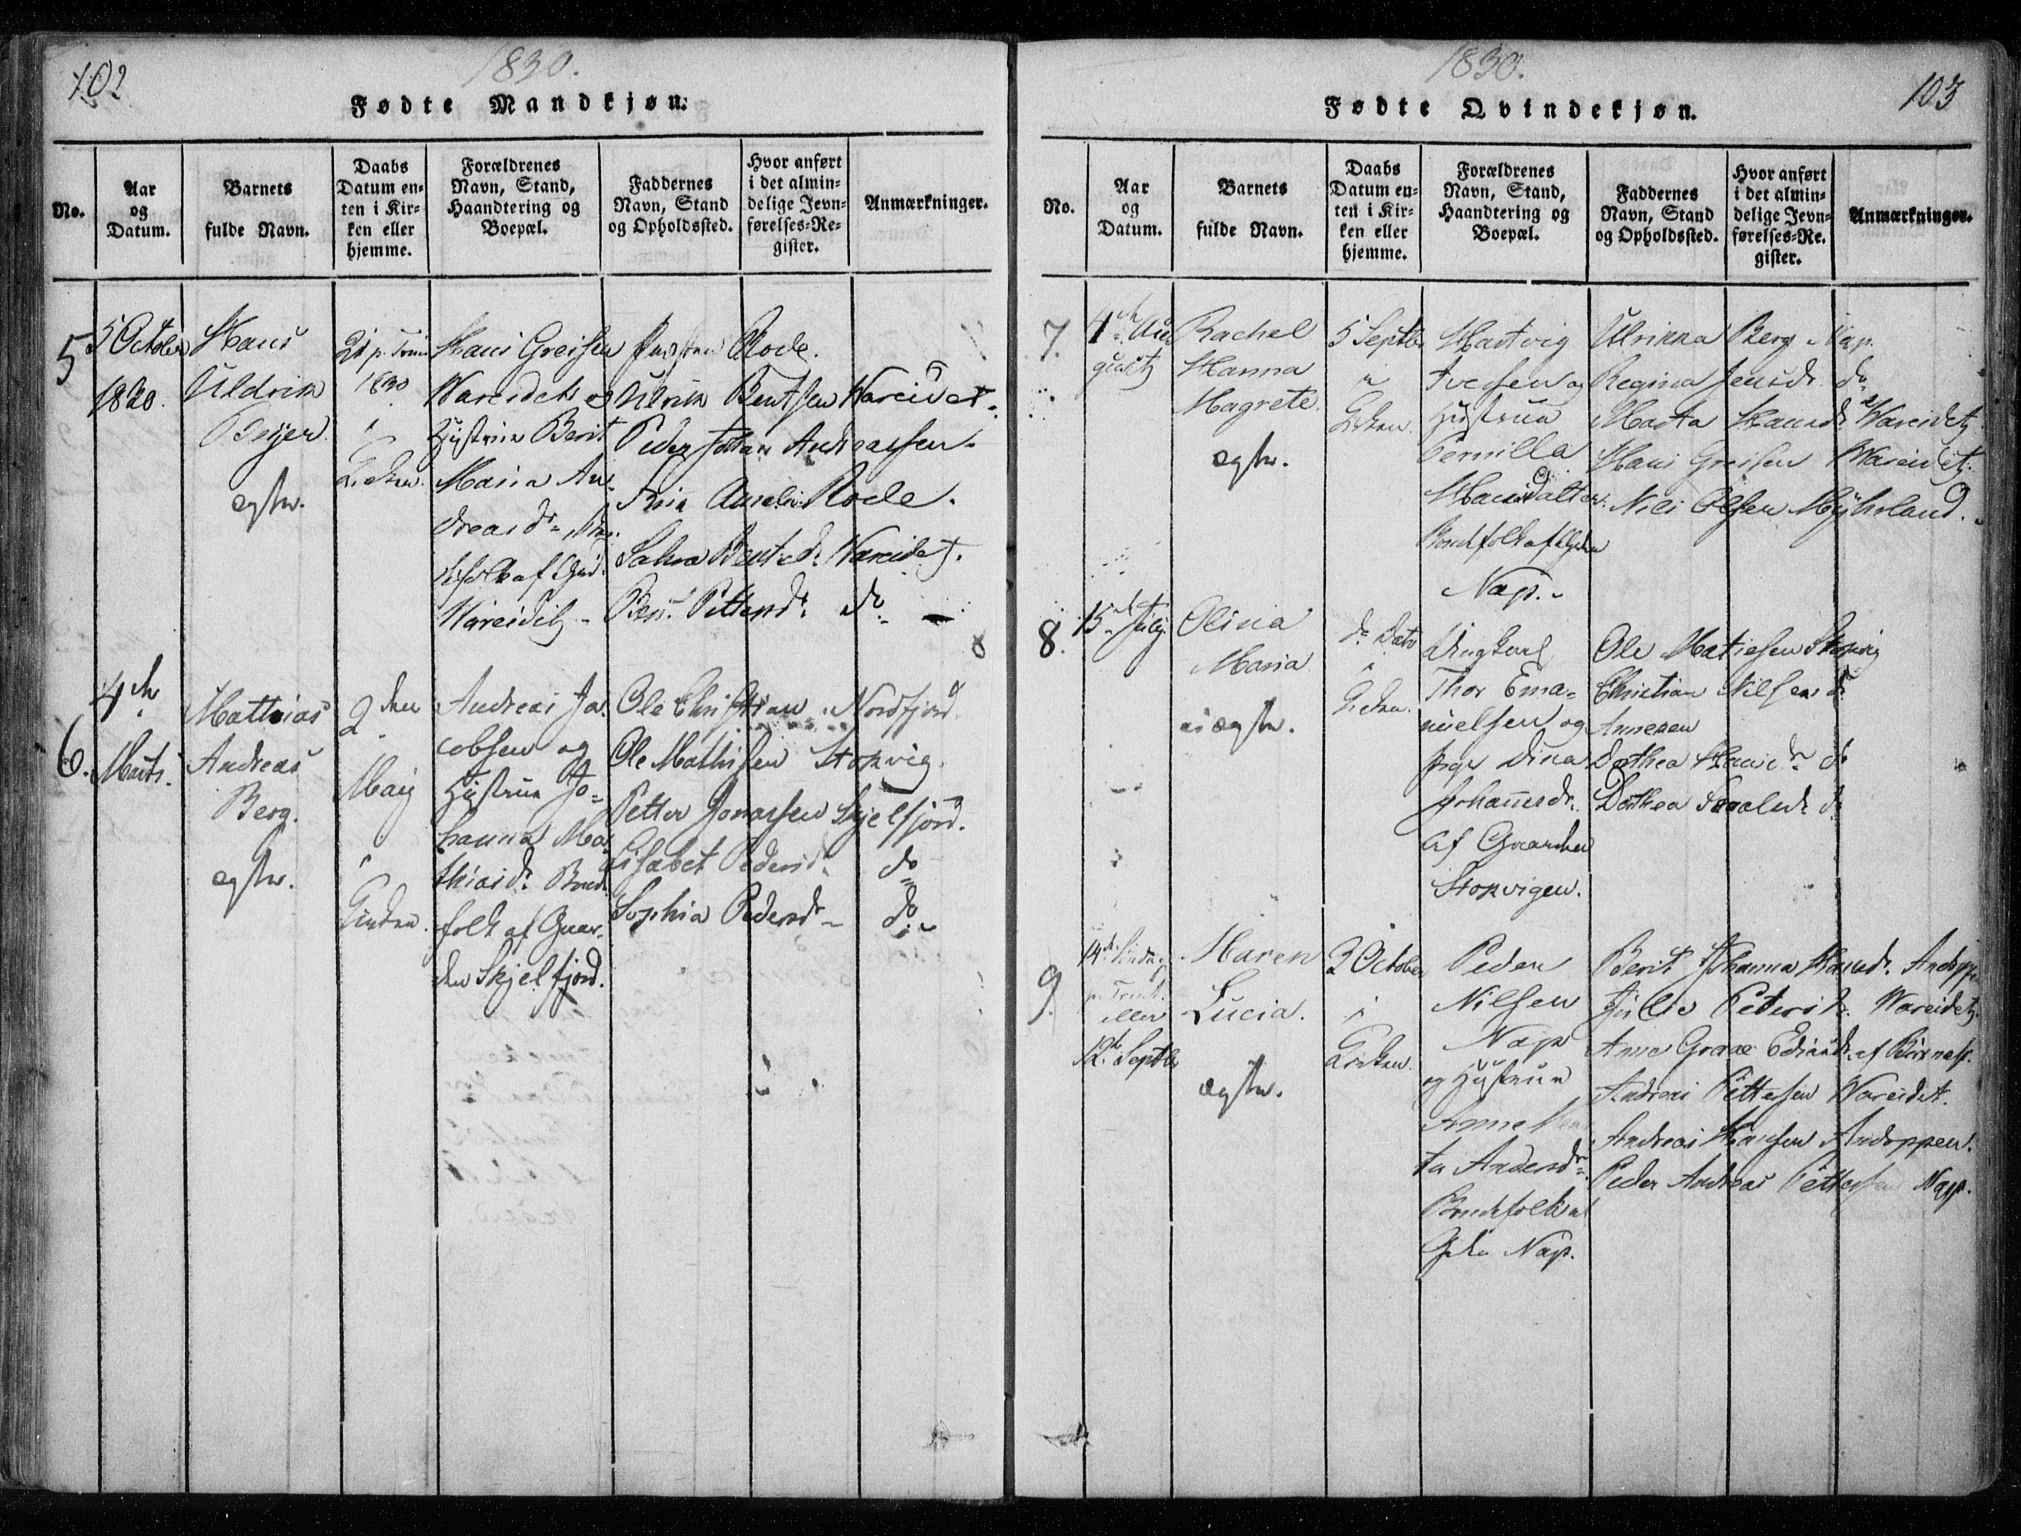 102
1830.
Fødte Mandkjøn.
No.
Aar
og
Datum.
Barnets
fulde Navn.
Daabs
Datum en-
ten i Kir-
ken eller
hjemme.
Forældrenes
Navn, Stand,
Haandtering og
Boepæl.
Faddernes
Navn, Stand
og Opholdssted.
Hvor anført
i det almin-
delige Jevn-
førelses-Re-
gister.
Anmærkninger.
5
5 October
1830.
Hans
Uldrik
Beyer
ægte.
21 p. Trin
1830
i
Kirken.
Hans Greisen
Wareidet og
Hustrue Berit
Maria An-
dreasdr
af
Wareidet
Præsten Rode.
Ulrik Bentsen Wareidet
Peder Johan Andreassen
Amalia Rode.
Bentsdr Wareidet.
Pettersdr do
6.
4de
Marts.
Mathias
Andreas
Berg.
ægte.
2den
May
i
Kirken.
Andreas Ja-
cobsen og
Hustrue Jo-
hanna Ma-
thiasdr. Bonde-
folk af Gaar-
den Skjelfjord.
Ole Christian Nordfjord.
Ole Mathisen Stokvig.
Petter Jonassen Skjelfjord.
Lisabet Pedersdr do
Sophia Pedersdr do
1830.
103
Fødte Qvindekjøn.
No.
Aar
og
Datum.
Barnets
fulde Navn.
Daabs
Datum en-
ten i Kir-
ken eller
hjemme.
Forældrenes
Navn, Stand,
Haandtering og
Boepæl.
Faddernes
Navn, Stand
og Opholdssted.
Hvor anført
i det almin-
delige Jevn-
førelses-Re-
gister.
Anmærkninger.
7.
4de Au-
gusti
Rachel
Hanna
Magrete.
ægte.
5 Septbr
i
Kirken.
Hartvig
Iversen og
Hustrue
Pernilla
Hansdatter.
Bondefolk af
Nap.
Ulrikka Berg Nap.
Regina Jensdr. do
Marta Hansdr Wareidet
Hans Greisen Wareidet.
Nils Olsen Myhrland.
8.
15de July
Olina
Maria
uægte.
do Dato
i
Kirken.
Ungkarl
Thor Ema-
nuelsen og
Pige Dina
Johannesdr.
af Gaarden
Stokvigen.
Ole Matiesen Stokvig
Christian Nilsen do
Anneken
Dorthea Hansdr do
Dorthea do
9.
14de Søndag
p. Trinit.
eller
12te Septbr
Maren
Lucia.
ægte.
3 October
i
Kirken.
Peder
Nilsen
Nap
og Hustrue
Anne
ta Andersdr
Bondefolk af
Nap.
Berit Johanna Hansdr. Andoppen
Petersdr. Wareidet.
Anne af
Andreas Pettersen Wareidet.
Andreas Hansen Andoppen.
Peder Andreas Pettersen Nap.